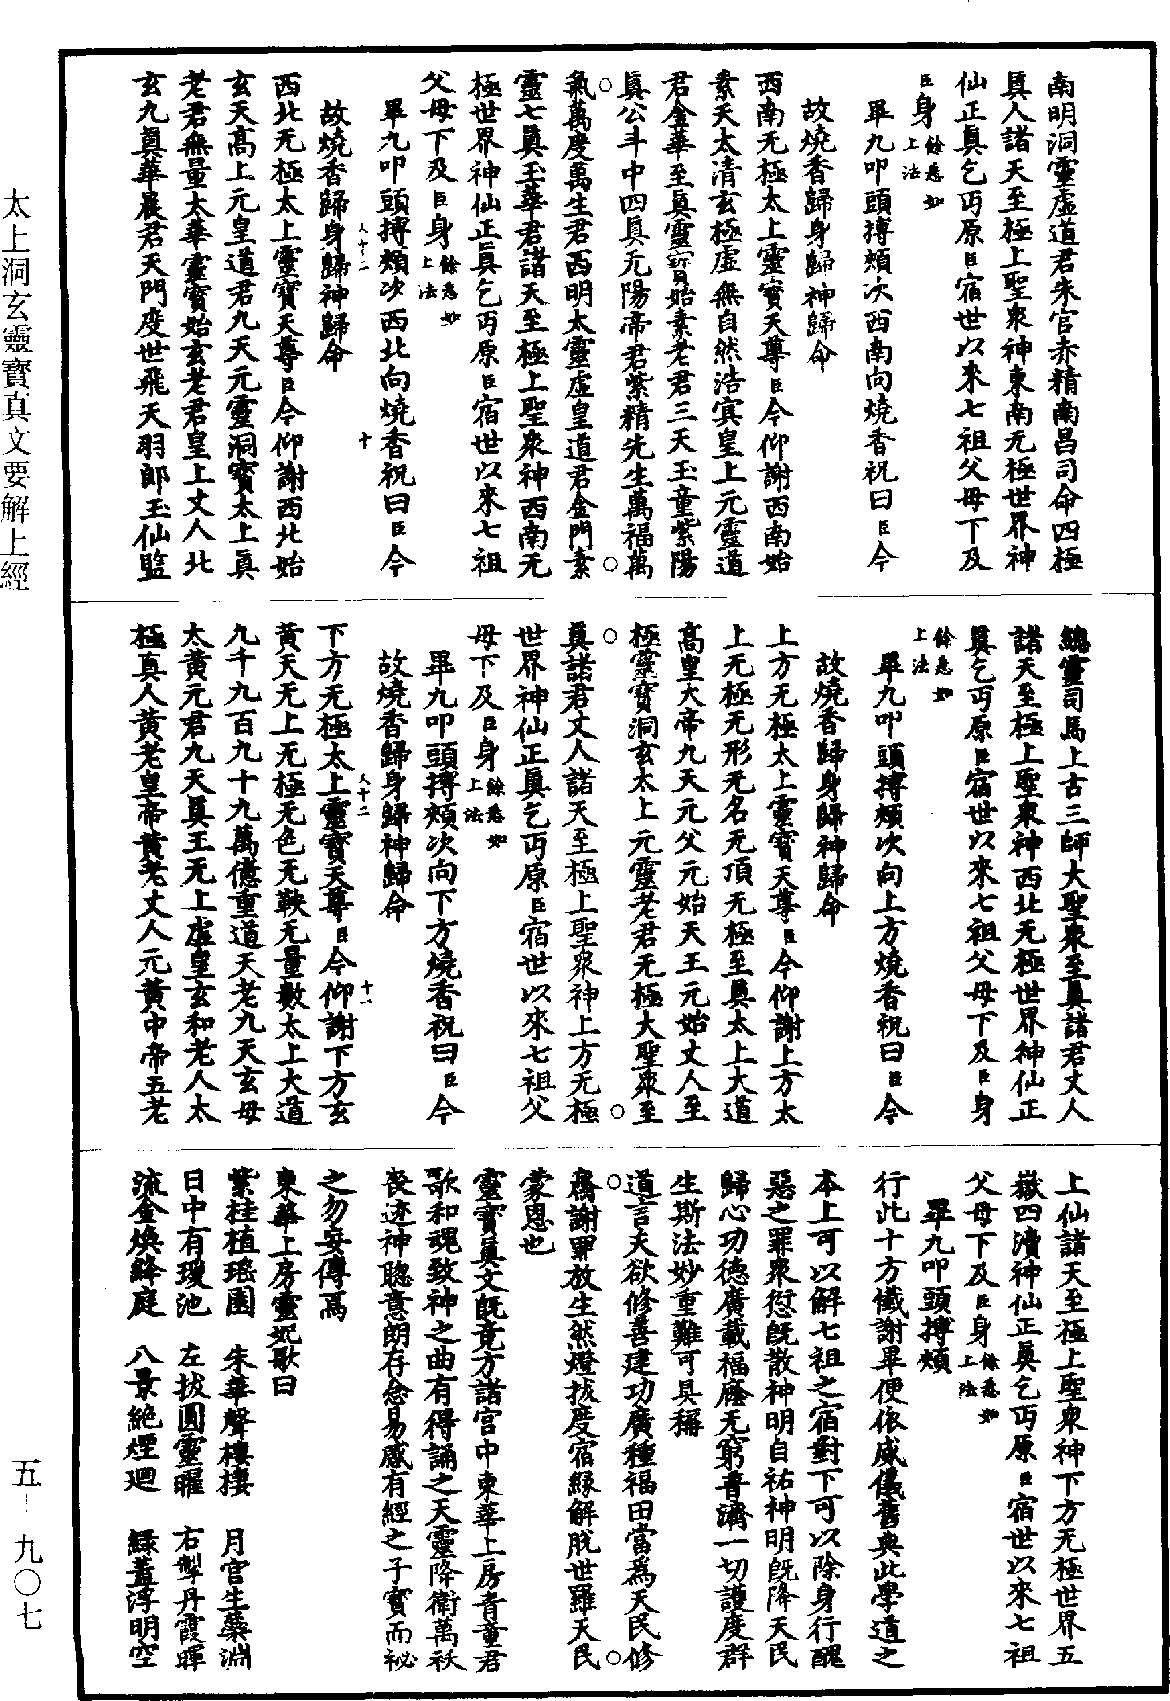 南明洞靈虛道君朱官赤精南昌司命四極
眞人諸天至極上聖眾神東南无極世界神
仙正眞乞丐原臣宿世以來七祖父母下及
臣身餘悉如上法
畢九叩頭摶頰次西南向燒香祝曰臣今
故燒香歸身歸神歸命
西南无極太上靈寶天尊臣今仰謝西南始
素天太清玄極虛無自然浩寞皇上元靈道
君金華至眞靈寶始素老君三天玉童紫陽
眞公斗中四眞元陽帝君紫精先生萬福萬
炁萬度萬生君西明太靈虛皇道君金門素
靈七眞玉華君諸天至極上聖眾神西南无
極世界神仙正眞乞丐原臣宿世以來七祖
父母下及臣身餘悉如上法
畢九叩頭摶頰次西北向燒香祝曰臣今
故燒香歸身歸神歸命
西北无極太上靈寶天尊臣今仰謝西北始
玄天高上元皇道君九天元靈洞寶太上眞
老君無量太華靈寶始玄老君皇上丈人北
玄九眞華晨君天門度世飛天羽郎玉仙監
總靈司馬上古三師大聖眾至眞諸君丈人
諸天至極上聖眾神西北无極世界神仙正
眞乞丐原臣宿世以來七祖父母下及臣身
餘悉如上法
畢九叩頭摶頰次向上方燒香祝曰臣今
故燒香歸身歸神歸命
上方无極太上靈寶天尊臣今仰謝上方太
上无極无形无名无頂无極至眞太上大道
高皇大帝九天元父元始天王元始丈人至
極靈寶洞玄太上元靈老君无極大聖眾至
眞諸君丈人諸天至極上聖眾神上方无極
世界神仙正眞乞丐原臣宿世以來七祖父
母下及臣身餘悉如上法
畢九叩頭摶頰次向下方燒香祝曰臣今
故燒香歸身歸神歸命
下方无極太上靈寶天尊臣今仰謝下方玄
黃天无上无極无色无鞅无量數太上大道
九千九百九十九萬億重道天老九天玄母
太黃元君九天眞王无上虛皇玄和老人太
極真人黃老皇帝黃老丈人元黃中帝五老
上仙諸天至極上聖眾神下方无極世界五
嶽四瀆神仙正眞乞丐原臣宿世以來七祖
父母下及臣身餘悉如上法
畢九叩頭摶頰
行此十方懺謝畢便依威儀舊典此學道之
本上可以解七祖之宿對下可以除身行醜
惡之罪眾愆旣散神明自祐神明旣降天民
歸心功德廣載福廕无窮普濟一切護度群
生斯法妙重難可具稱
道言夫欲修善建功廣種福田當爲天民修
齋謝罪放生然燈拔度宿緣解脫世羅天民
蒙恩也
靈寶眞文旣竟方諸宮中東華上房青童君
歌和魂致神之曲有得誦之天靈降衛萬袄
喪迹神聰意朗存念易感有經之子寶而祕
之勿妄傳焉
東華上房靈妃歌曰
紫桂植瑤園　朱華聲棲棲　月宮生蘂淵
日中有瓊池　左拔圓靈曜　右掣丹霞暉
流金煥絳庭　八景絶煙迴　綠蓋浮明空
人十二 十
人十二 十一
太上洞玄靈寶真文要解上經
五—九〇七